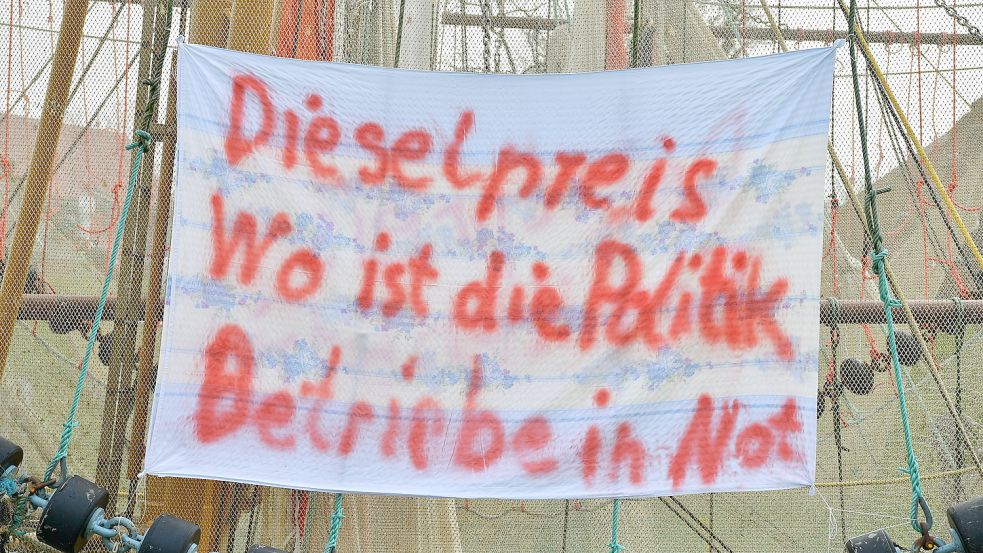 Dieselpreis
Wo ist die Politik
Betriebe in Not